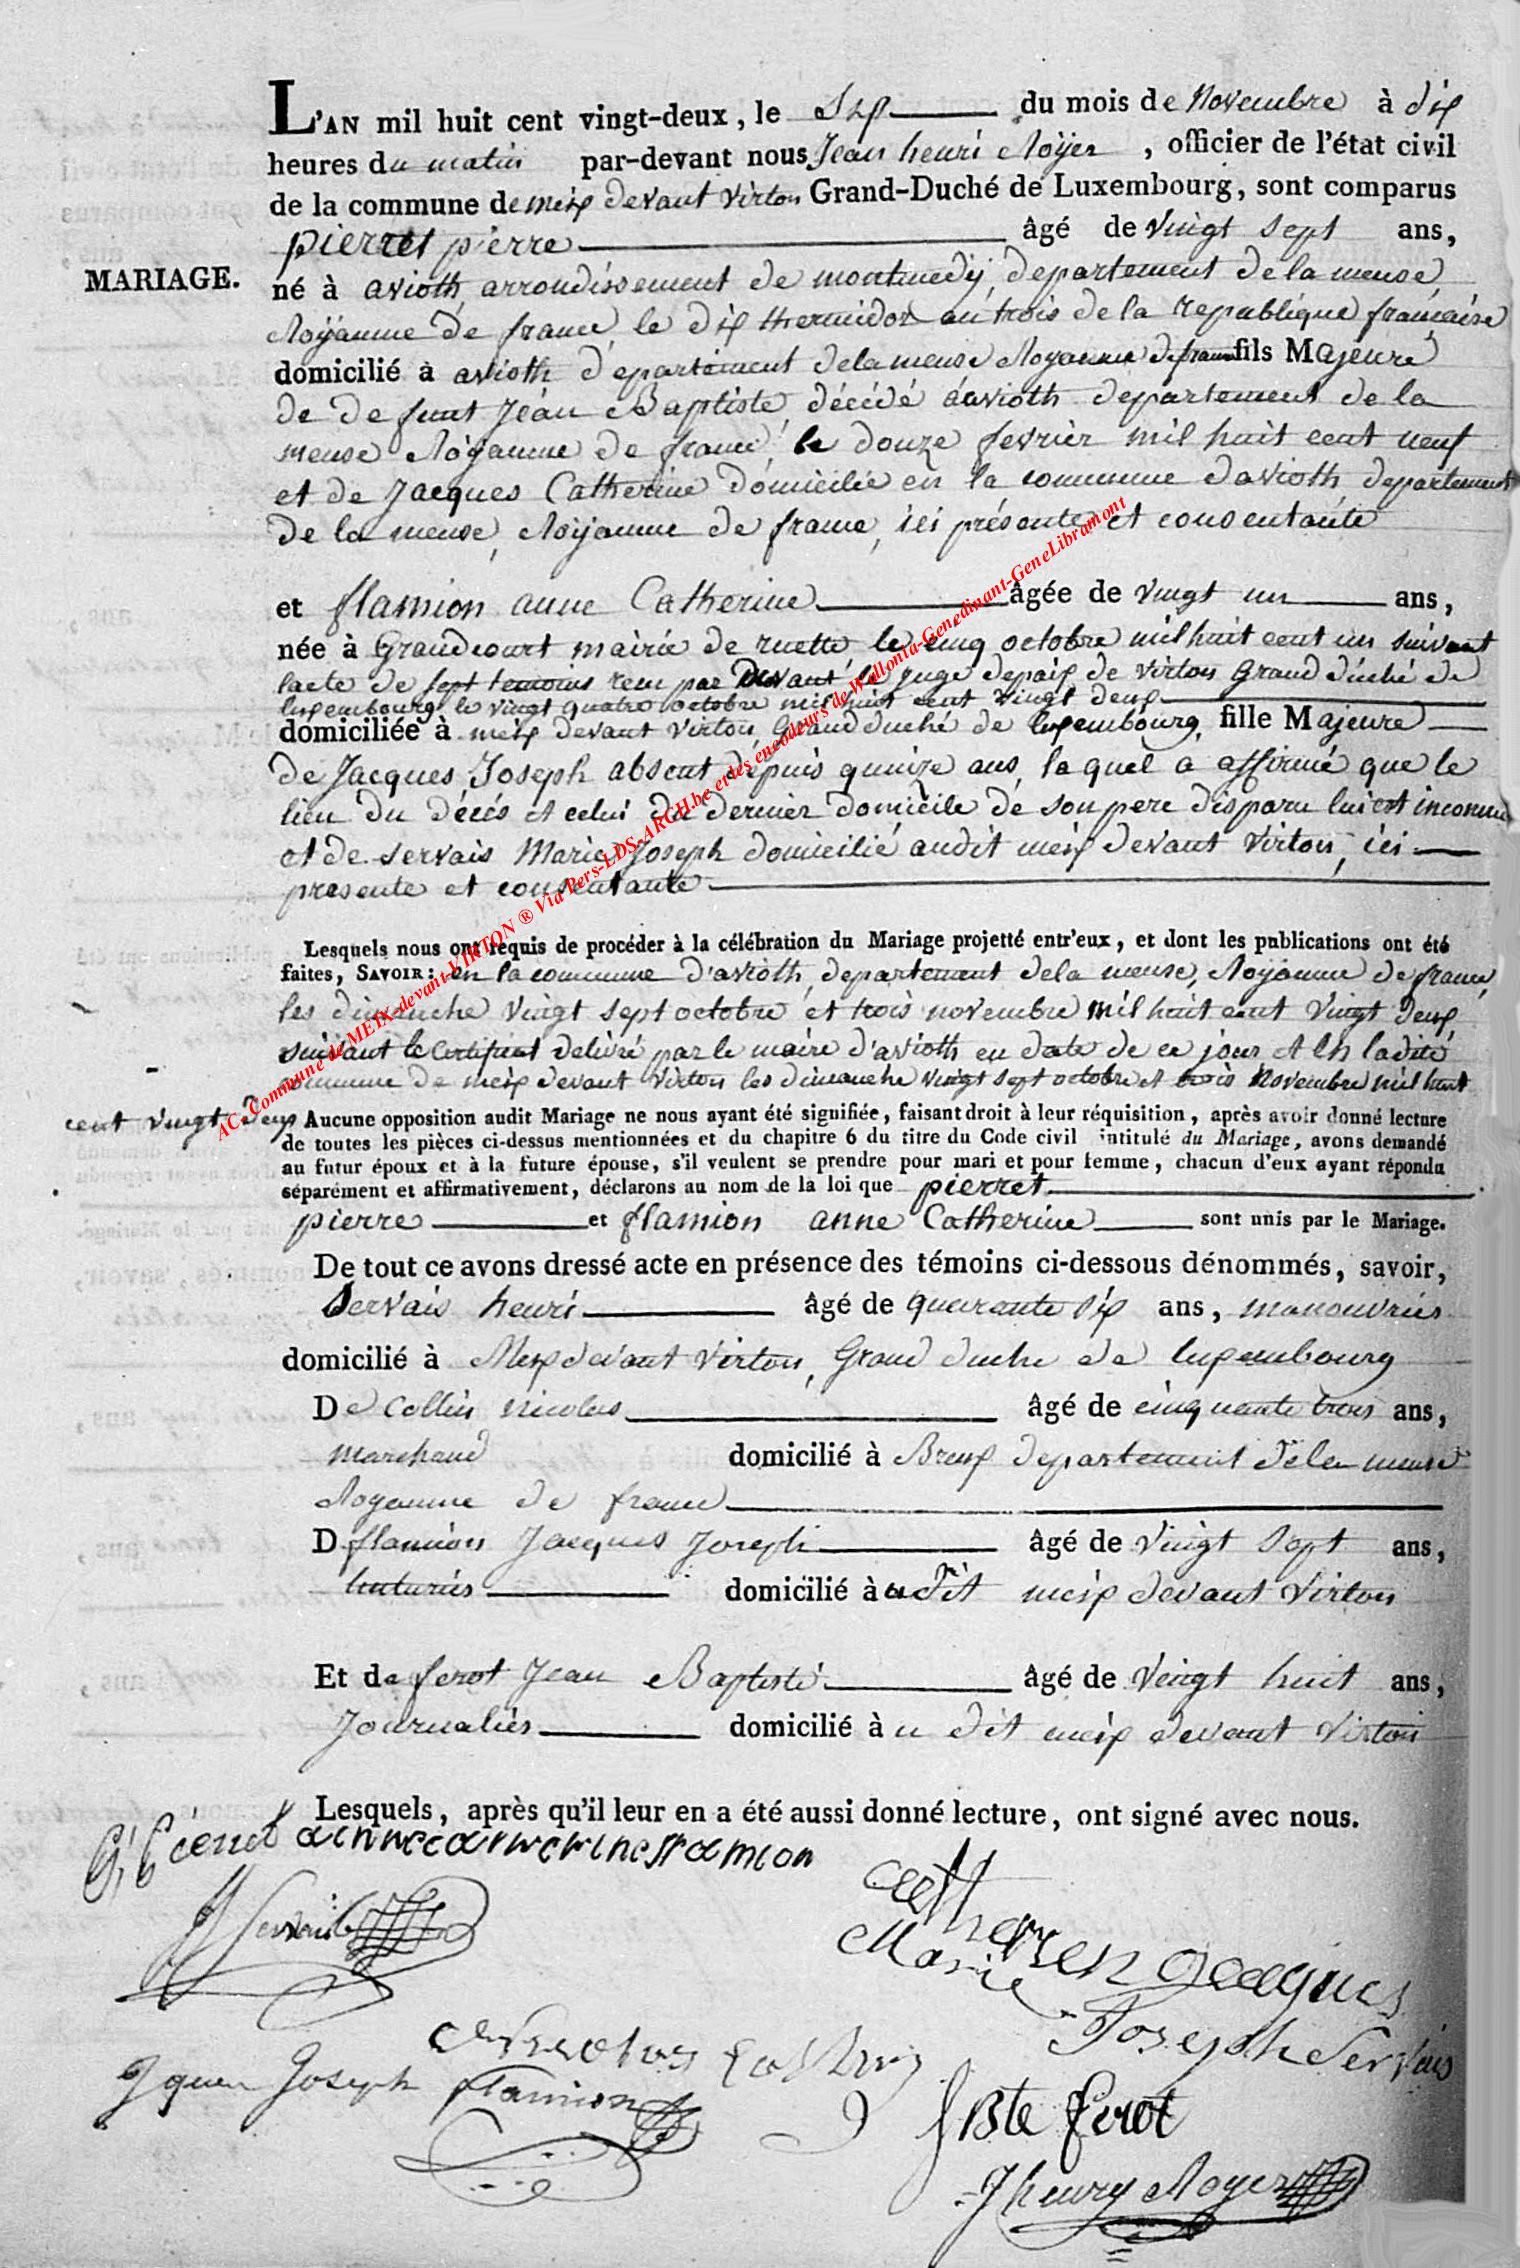 L'AN mil huit cent vingt-deux, le six du mois de Novembre à dix
heures du matin par-devant nous Jean henri Royer, officier de l'état civil
de la commune de meix devant virton Grand-Duché de Luxembourg, sont comparus
pierret pierre âgé de vingt sept ans,
MARIAGE.
né à avioth, arrondissement de montmedÿ, departement de la meuse
Royaume de france, le dix thermidor an trois de la republique francaise
domicilié à avioth departement dela meuse Royaume de france fils Majeure
de defunt Jean Baptiste décédé à avioth departement de la
meuse Royaume de france, le douze fevrier mil huit cent neuf
et de Jacques Catherine domiciliée en la commune d'avioth departement
de la meuse, Royaume de france, ici présente et consentante
et flamion anne Catherine âgée de vingt un ans,
née à Grandcourt mairie de ruette le cinq octobre mil huit cent un suivant
lacte de sept temoins recu par Devant le juge depaix de virton Grand duché de
luxembourg le vingt quatre octobre mil huit cent vingt deux
domiciliée à meix devant virton, Grand duché de luxembourg, fille Majeure
de Jacques Joseph absent depuis quinze ans, laquel a affirmé que le
lieu du décés et celui du dernier domicile de son pere disparu lui est inconnu
et de servais Marie Joseph domicilié audit meix devant virton, ici
presente et consentante
Lesquels nous ont requis de procéder à la célébration du Mariage projetté entr'eux, et dont les publications ont été
faites, SAVOIR: en la commune d'avioth, departement dela meuse, Royaume de france,
les dimanche vingt sept octobre et trois novembre mil huit cent vingt deux,
suivant le certificat delivré par le maire d'avioth en date de ce jour et en ladite
commune de meix devant virton les dimanche vingt sept octobre et trois Novembre mil huit
cent vingt deux Aucune opposition audit Mariage ne nous ayant été signifiée, faisant droit à leur réquisition, après avoir donné lecture
de toutes les pièces ci-dessus mentionnées et du chapitre 6 du titre du Code civil intitulé du Mariage, avons demandé
au futur époux et à la future épouse, s'il veulent se prendre pour mari et pour femme, chacun d'eux ayant répondu
séparément et affirmativement, déclarons au nom de la loi que pierret
pierre et flamion anne Catherine sont unis par le Mariage.
De tout ce avons dressé acte en présence des témoins ci-dessous dénommés, savoir,
Servais henri âgé de quarante six ans, manouvrier
domicilié à Meix devant virton, Grand duche de luxembourg
De Collin nicolas âgé de cinquante trois ans,
marchand domicilié à Breux departement dela meuse
Royaume de france
D flamion Jacques Joseph âgé de vingt sept ans,
domicilié à u dit meix devant virton
Et de ferot Jean Baptiste âgé de vingt huit ans,
Journalier domicilié à u dit meix devant virton
Lesquels, après qu'il leur en a été aussi donné lecture, ont signé avec nous.
annecatherineflamion
H Servais
Catherien Jacques
Marie Joseph Servais
Jques Joseph flamion
J Bte ferot
J henry Royer
AC-Commune de MEIX-devant-VIRTON ® Via Pers-LDS-ARCH.be et les encodeurs de Wallonia-Genedinant-GeneLibramont